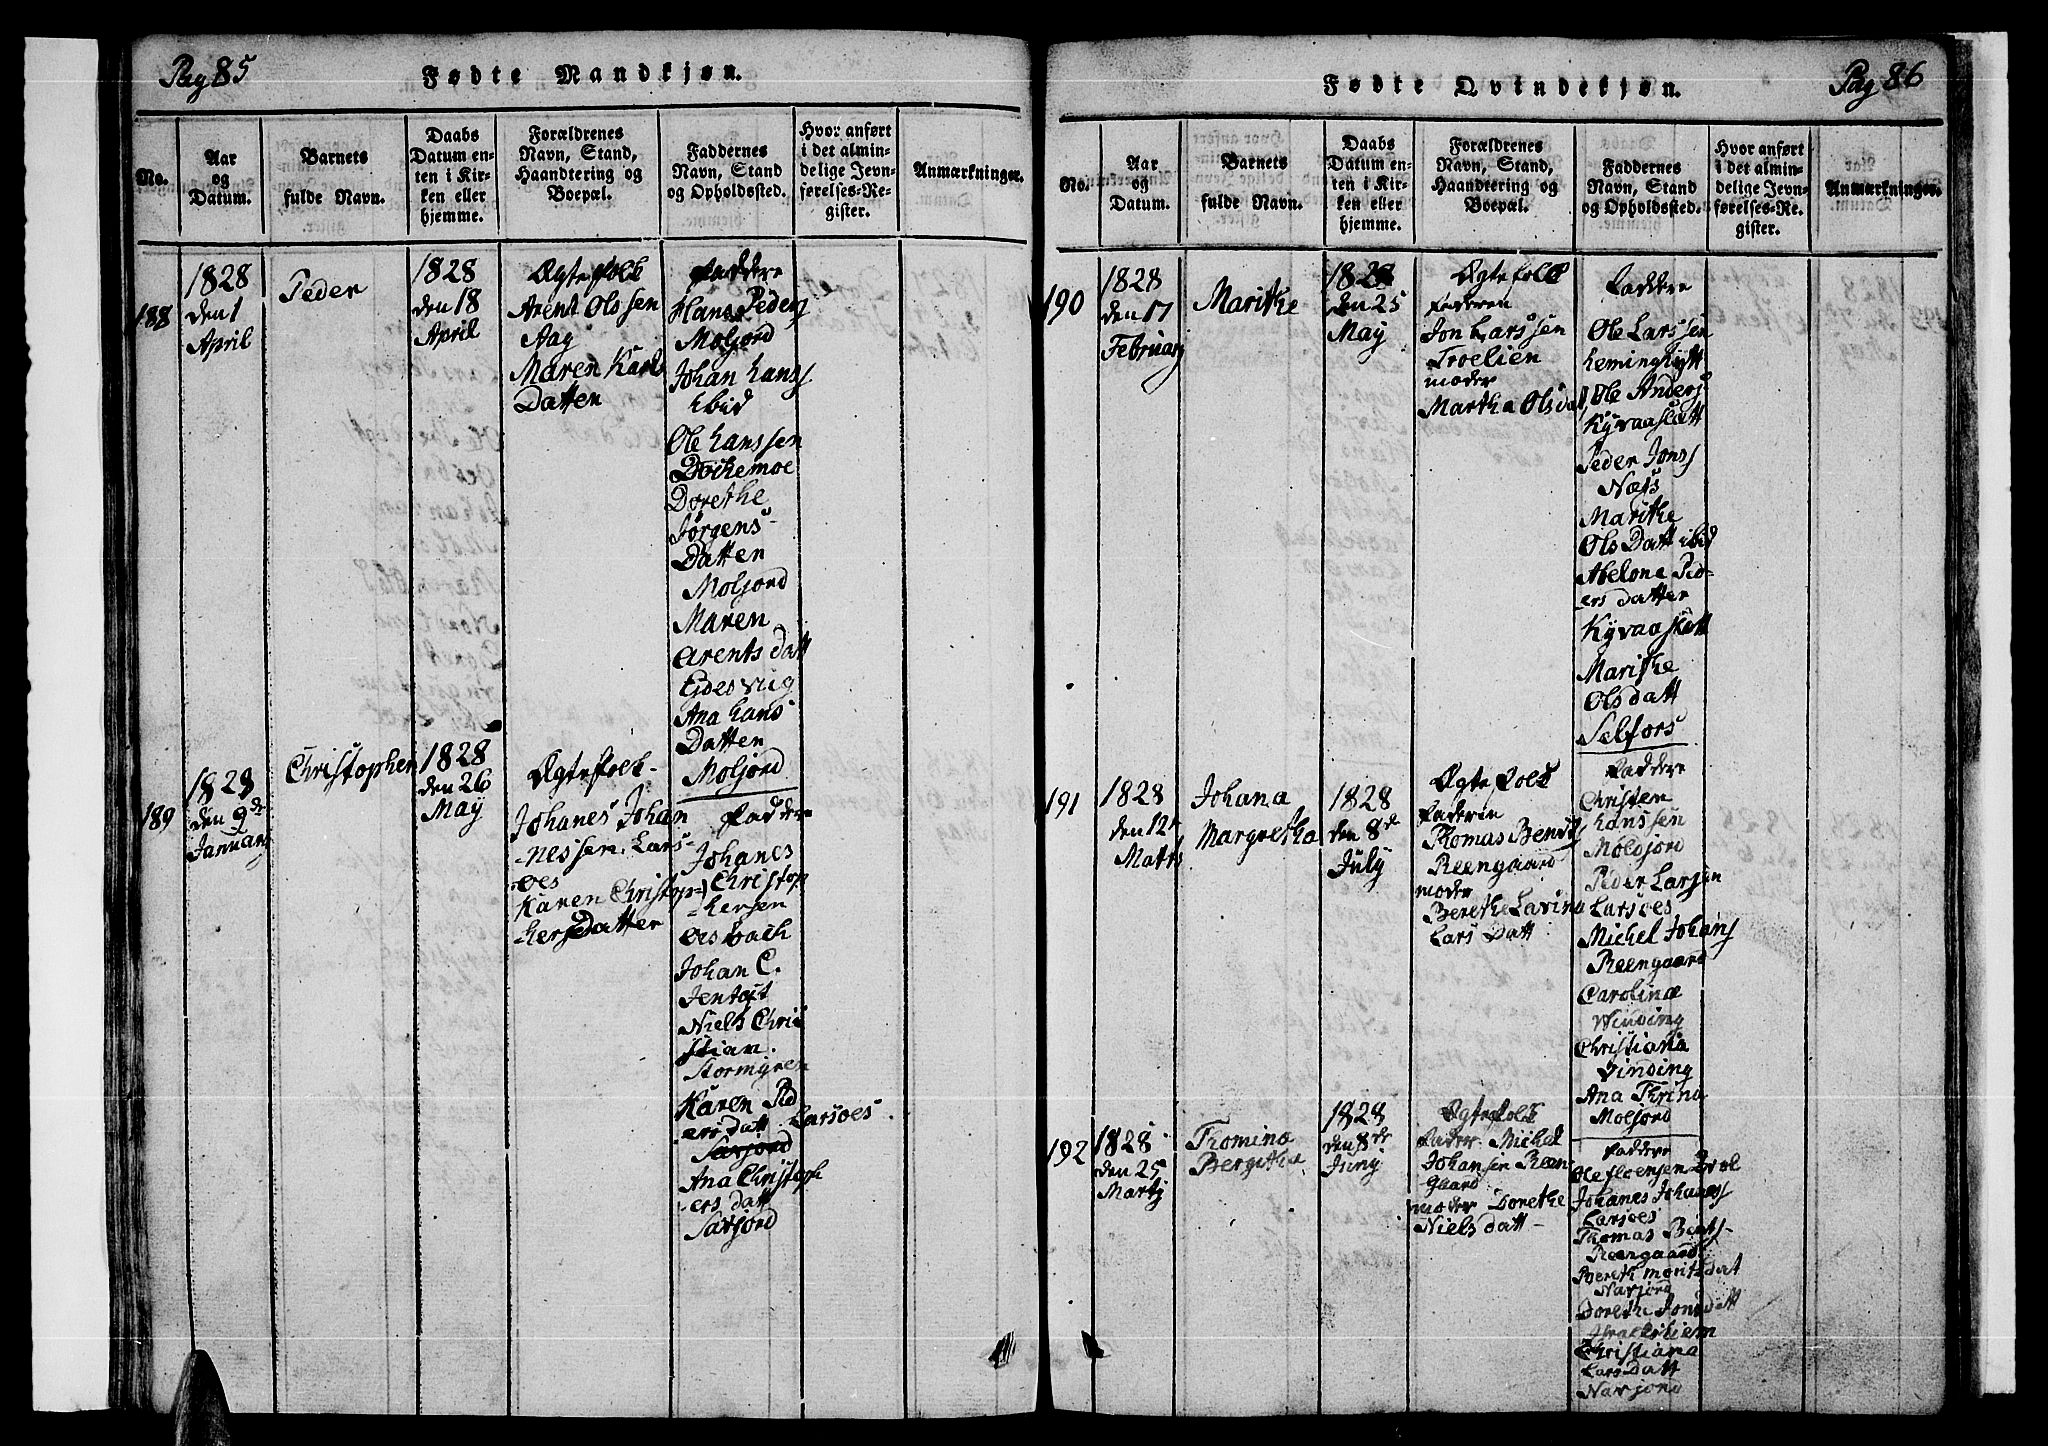 Pag 85
Fødte Mandkjøn.
No.
Aar
og
Datum.
Barnets
fulde Navn.
Daabs
Datum en-
ten i Kir-
ken eller
hjemme.
Forældrenes
Navn, Stand,
Haandtering og
Boepæl.
Faddernes
Navn, Stand
og Opholdsted.
Hvor anført
i det almin-
delige Jevn-
førelses-Re-
gister.
Anmærkninger.
188
1828
den 1
April
Peder
1828
den 18
April
Ægtefolk
Arent Olssen
Aag
Maren Karls
Datten
Faddere
Hans Peders
Moljord
Johan Hanss
ibid
Ole Hanssen
Dorethe
Jørgens-
Datten
Moljord
Maren
Arents datt
Ana Hans
Datten
Moljord
189
1828
den 9de
Januarj
Christopher
1828
den 26
May
Ægtefolk-
Johanes Johan
-nessen. Lars-
oes
Karen Christop=
-hersDatter
Faddere
Johanes
Christop
-hersen
Johan C.
Jentoft
Niels Chri
stian.
Stormgren
Karen Ped
ersdatt. Larsoes
Saxjord
Ana Christoph
-ers datt
Saxjord
Pag 86
Fødte Qvindekjøn.
No.
Aar
og
Datum.
Barnets
fulde Navn.
Daabs
Datum en-
ten i Kir-
ken eller
hjemme.
Forældrenes
Navn, Stand,
Haandtering og
Boepæl.
Faddernes
Navn, Stand
og Opholdsted.
Hvor anført
i det almin-
delige Jevn-
førelses-Re-
gister.
Anmærkninger.
190
1828
den 17
Februarj
Marithe
1828
den 25
May
Ægtefolk
Faderen
Jon Larssen
Troelien
moder
Martha Olsdat
Faddere
Ole Larssen
Heminghytt
Ole Anderss
Peder Jonss
Næts
Marithe
Ols Datt ibid
Abelone Ped-
-ers datter
Marithe
Olsdatt
Selfors
191
1828
den 12te
Marts
Johana
Margretha
1828
den 8de
July
Ægte Folk
Faderin
Thomas Bends
Reengaard
moder
Berethe Lavina
Lars Datt
Faddere
Christen
Hanssen
Moldjord
Peder Larsen
Larsoes
Michel Johans
Reengaard
Carolina
Winding
Christiana
Vinding
Ana Thrina
Moljord
192
1828
den 25
Martj
Tromina
Bergitha
1828
den 8de
Junj
Ægtefolk
Fader. Michel
Johansen Reen-
gaard
moder Dorethe
Niels datt-
Faddere
Johanes Johaness
Larsoes
Thomas Bents-
Reengaard
Bereth moritsdat
Navjord
Dorethe Jonsdatt
Christiana
Larsdatt
Navjord